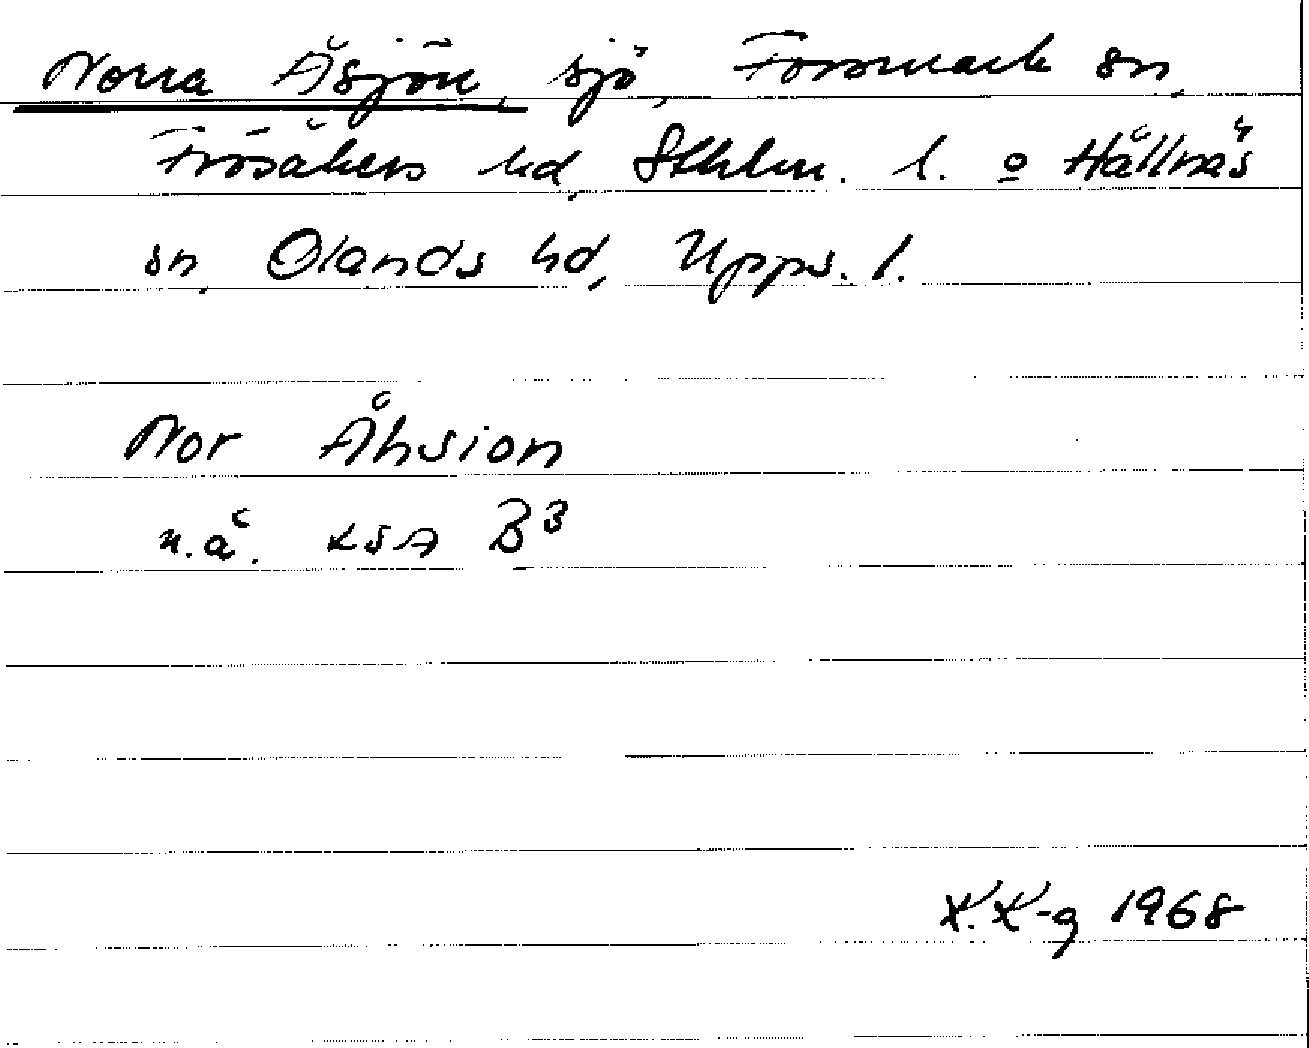 Norra Åsjön, sjö, Forsmark sn,
Frösåkers hd, Sthlm. l. o Hållnäs
sn, Olands hd, Upps. l.
Nor Åhsion
n.å. LSA B3
K.K-g 1968